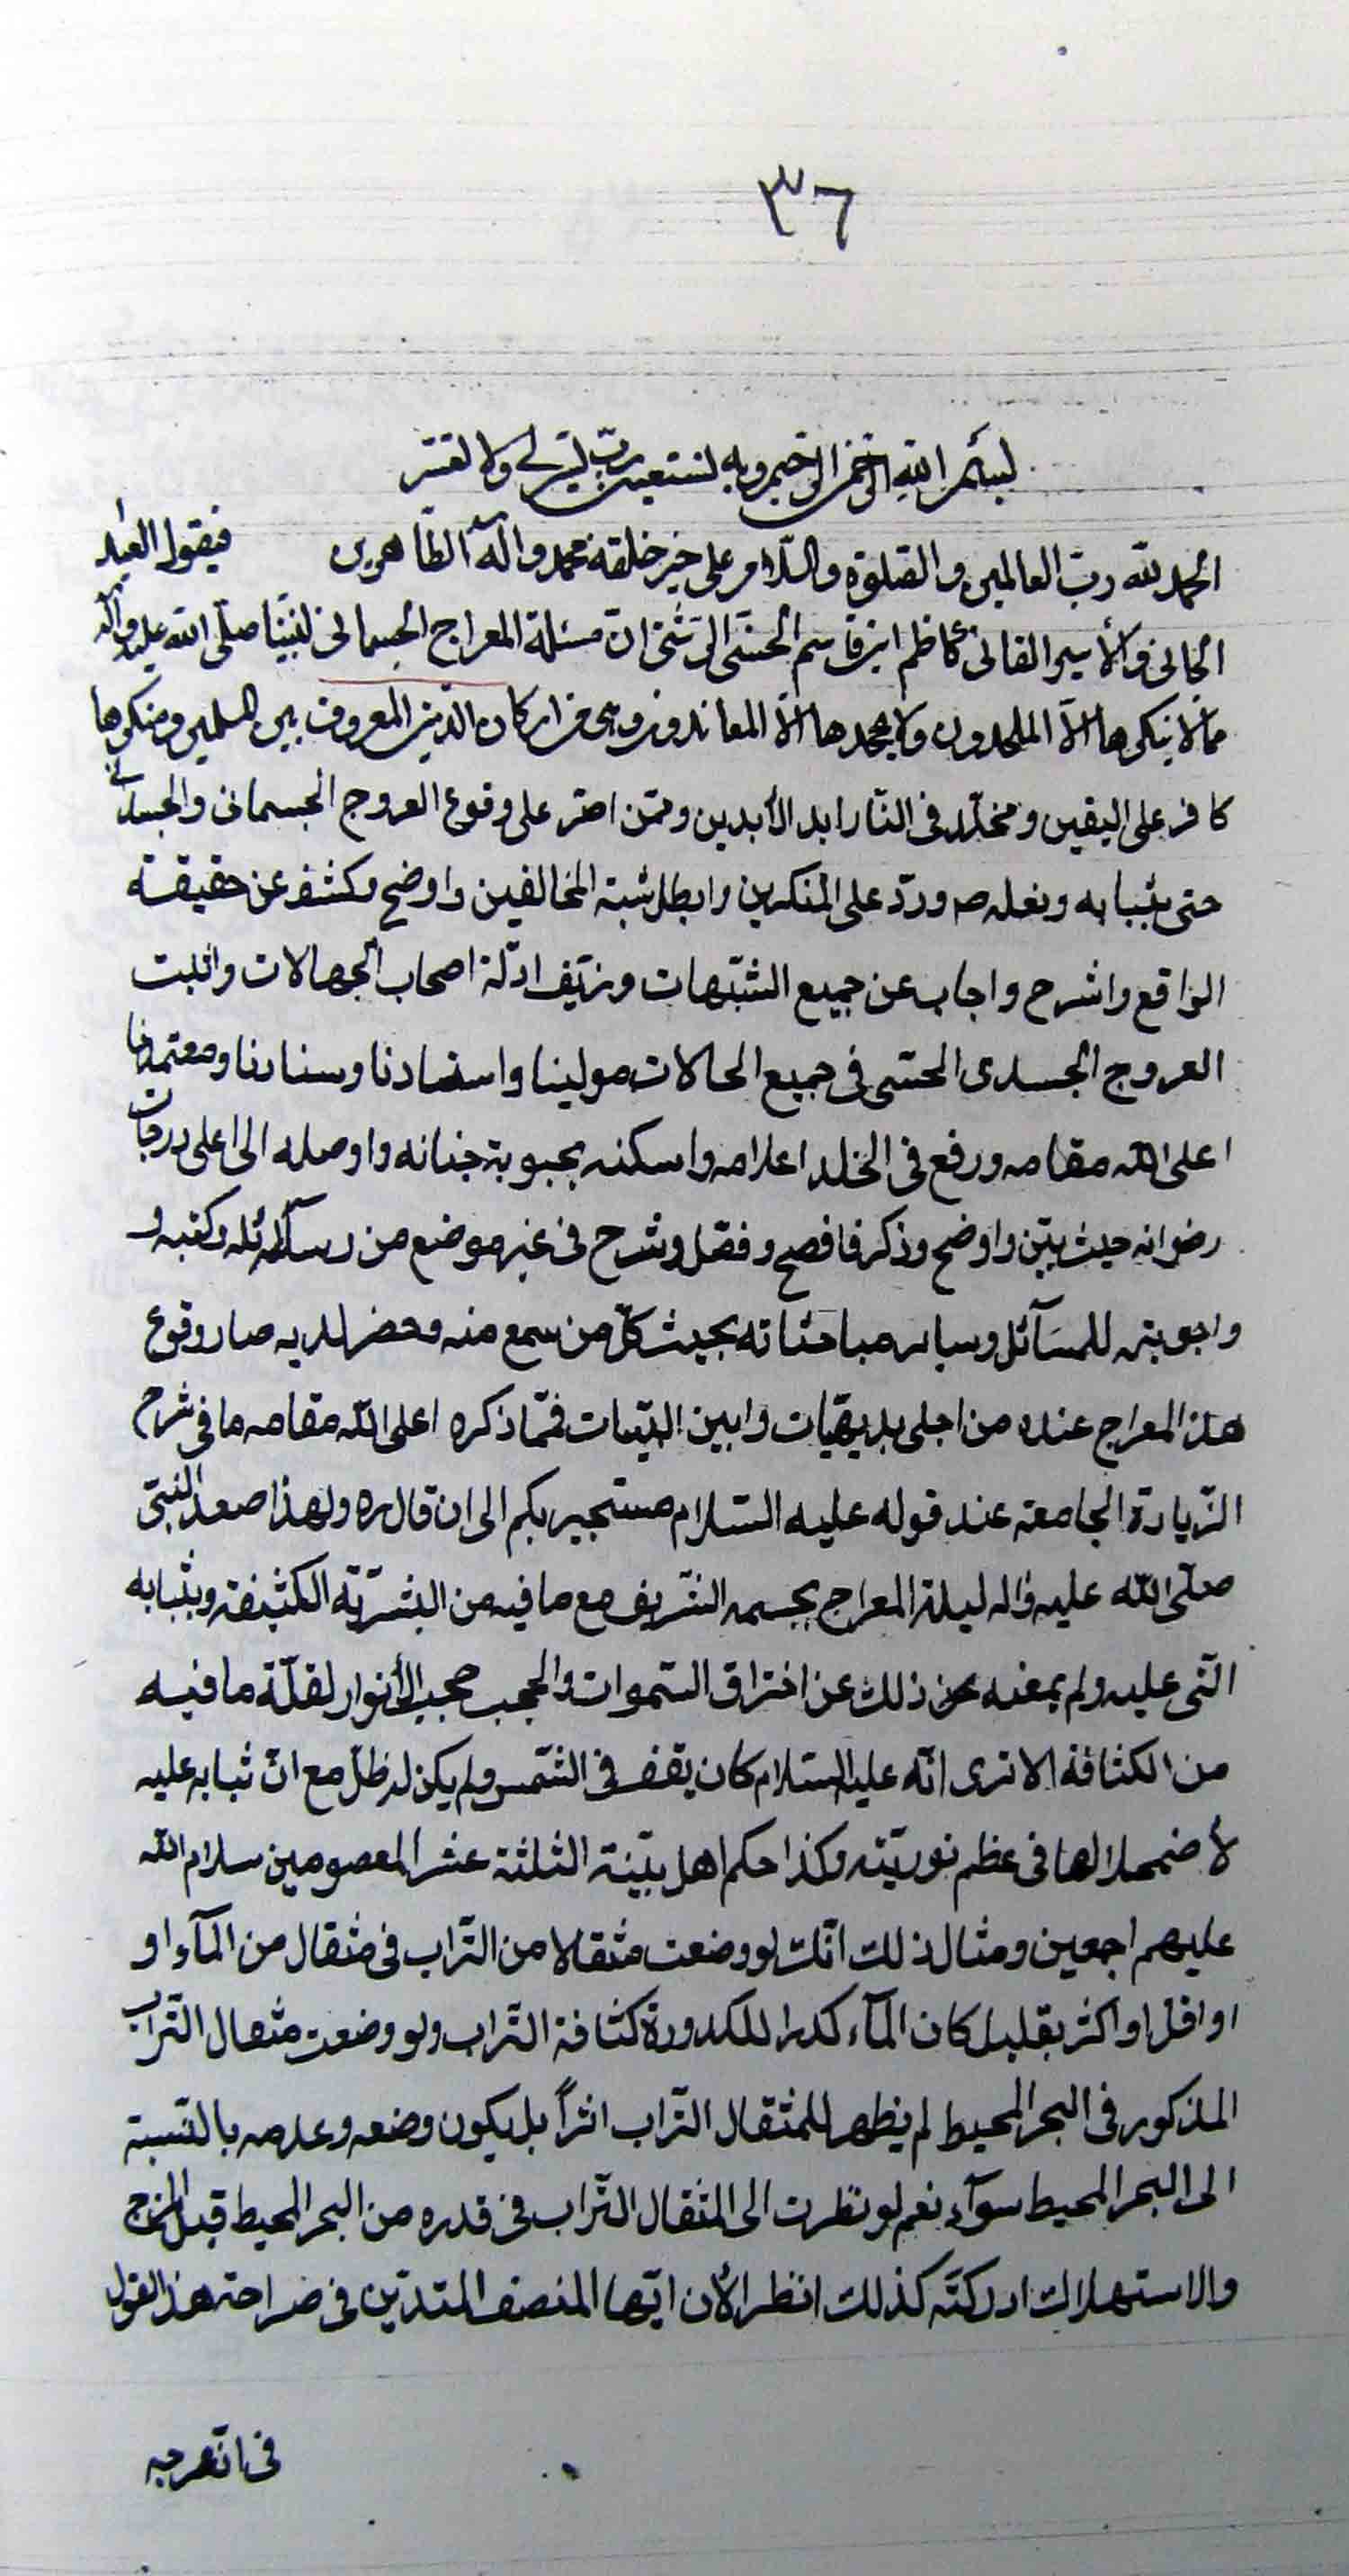 ٣٦
بسم الله الرحمن الرحيم وبه نستعين رب يسر ولا تعسر
الحمد لله رب العالمين والصلوة والسلام على خير خلقه محمد واله الطاهرين فيقول العبد
الجانى والأسير الفانى كاظم ابن قاسم الحسنى الرشتى ان مسئلة المعراج الجسمانى لنبينا صلى الله عليه وآله
مما لا ينكرها الا الملحدون ولا يجحدها الا المعاندون وهى من اركان الدين المعروف بين المسلمين ومنكرها
كافر على اليقين ومخلد فى النار ابد الأبدين وممن اصر على وقوع العروج الجسمانى والجسدانى
حتى بثيابه ونعله ص ورد على المنكرين وابطل شبه المخالفين واوضح وكشف عن حقيقة
الواقع واشرح واجاب عن جميع الشبهات وزيف ادلة اصحاب الجهالات واثبت
العروج الجسدى الحسى فى جميع الحالات مولينا واستادنا وسنادنا ومعتمدنا
اعلى الله مقامه ورفع فى الخلد اعلامه واسكنه بحبوبة جنانه واوصله الى اعلى درجات
رضوانه حيث بين واوضح وذكر فافصح وفصل وشرح فى غير موضع من رسائله وكتبه و
واجوبته للمسآئل وساير مباحثاته بحيث كل من سمع منه وحضر لديه صار وقوع
هذا المعراج عنده من اجلى بديهيات وابين البينات فمما ذكره اعلى الله مقامه ما فى شرح
الزيارة الجامعة عند قوله عليه السلام مستجير بكم الى ان قال ره ولهذا صعد النبى
صلى الله عليه واله ليلة المعراج بجسمه الشريف مع ما فيه من البشرية الكثيفة وبثيابه
التى عليه ولم يمنعه ذلك عن اختراق السموات والحجب حجب الأنوار لقلة ما فيه
من الكثافة الا ترى انه عليه السلام كان يقف فى الشمس ولم يكن له ظل مع ان ثيابه عليه
لأضمحلالها فى عظم نوريته وكذا حكم اهل بيته الثلثة عشر المعصومين سلام الله
عليهم اجمعين ومثال ذلك انك لو وضعت مثقالا من التراب فى مثقال من المآء او
او اقل او اكثر بقليل كان المآء كدرا للكدورة كثافة التراب ولو وضعت مثقال التراب
المذكور فى البحر المحيط لم يظهر للمثقال التراب اثراً بل يكون وضعه وعدمه بالنسبة
الى البحر المحيط سوآء نعم لو نظرت الى المثقال التراب فى قدره من البحر المحيط قبل المزج
والاستهلاك ادركته كذلك انظر الأن ايها المنصف المتدين فى صراحة هذا القول
فى انه عرج به